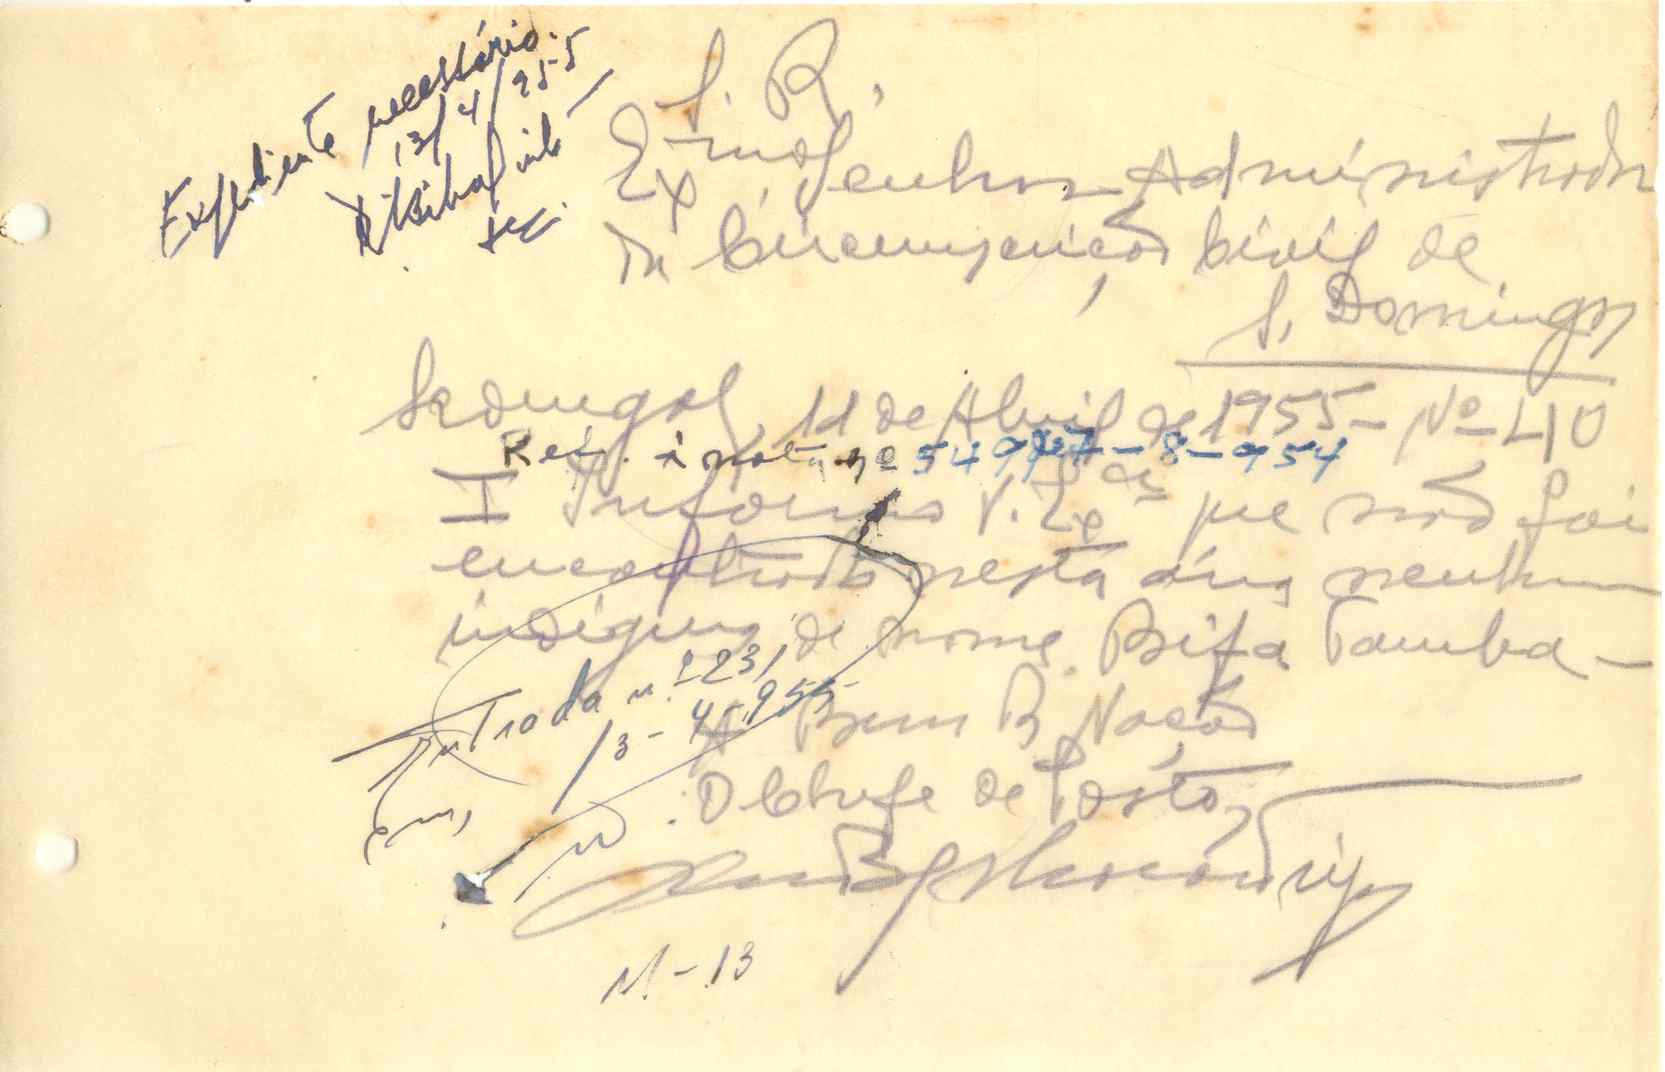 Expediente necessário.
13/4/955
S. R.
Exmo Senhor Administrador
da Circunscrição Civil de
S. Domingos
Sedengal, 11 de Abril de 1955 - Nº 40
Ref. à nota nº 549 8-954
I Informo V. Exª que não foi
encontrado nesta área nenhum
indígena de nome Bifa Tamba -
A Bem da Nação
O Chefe de Posto,
Entrada n.º 231
em, 13-4-955
M-13